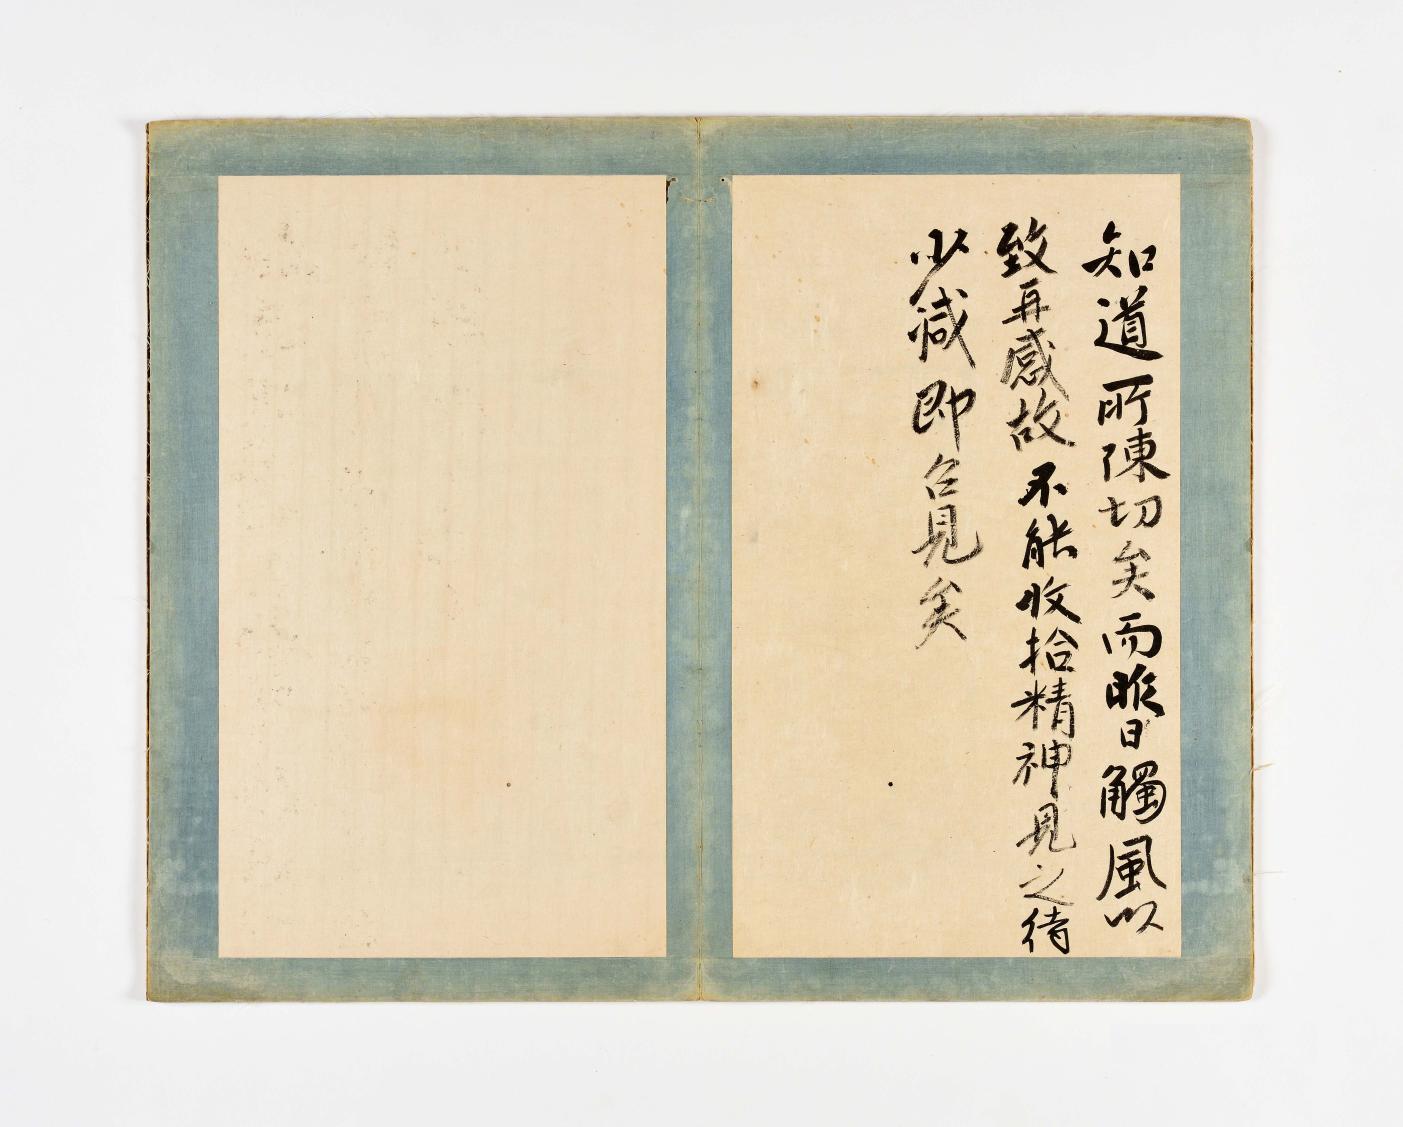 知道所陳切矣而昨日觸風以
致再感故不能收拾精神見之待
少減即召見矣